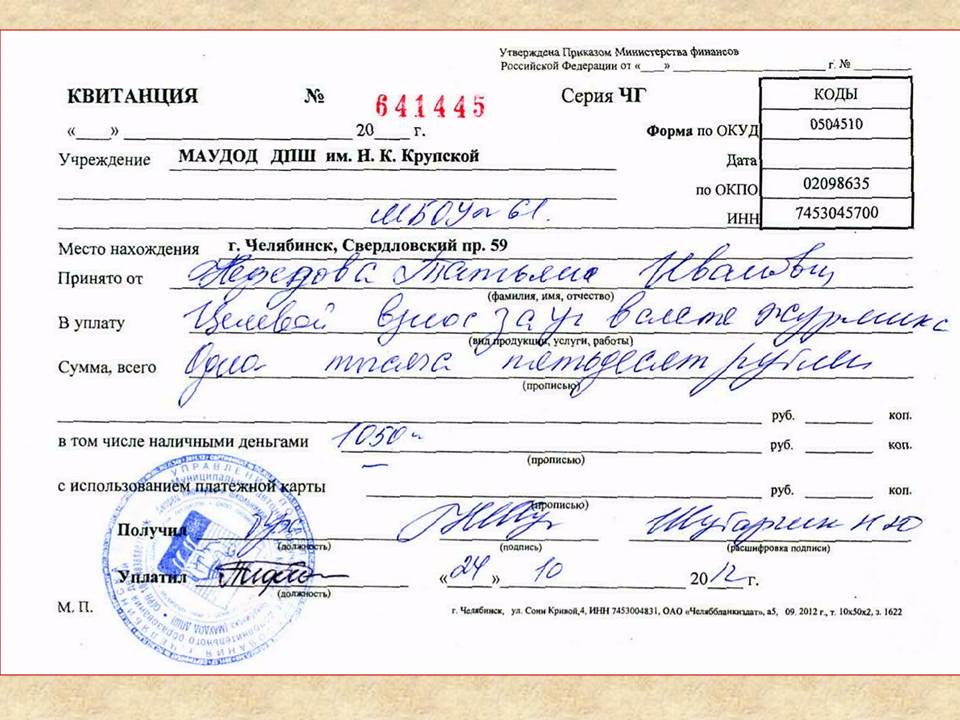 Утверждена Приказом Министерства финансов
Российской Федерации от «___» ____________ г. № ________
КВИТАНЦИЯ № 641445 Серия ЧГ
КОДЫ
«____» ____________ 20____ г. Форма по ОКУД 0504510
Учреждение МАУДОД ДПШ им. Н. К. Крупской Дата
по ОКПО 02098635
МБОУ № 61. ИНН 7453045700
Место нахождения г. Челябинск, Свердловский пр. 59
Принято от Нефедова Татьяна
(фамилия, имя, отчество)
В уплату Целевой взнос за уч
(вид продукции, услуги, работы)
Сумма, всего Одна тысяча пятьдесят рублей
(прописью)
руб. коп.
в том числе наличными деньгами 1050- руб. коп.
(прописью)
с использованием платежной карты руб. коп.
(прописью)
Получил
(должность) (подпись) (расшифровка подписи)
Уплатил «24» 10 2012 г.
(должность)
М. П. г. Челябинск, ул. Сони Кривой,4, ИНН 7453004831, ОАО «Челяббланкиздат», а5, 09. 2012 г., т. 10х50х2, з. 1622